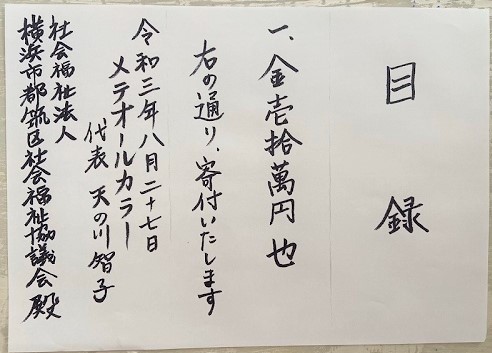 目録
一、金壱拾萬円也
右の通り、寄付いたします
令和三年八月二十七日
メテオールカラー
代表 天の川智子
社会福祉法人
横浜市都筑区社会福祉協議会殿